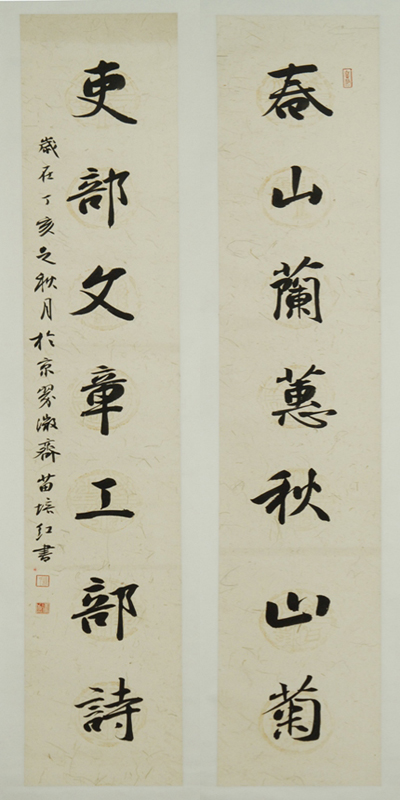 春山蘭蕙秋山菊
吏部文章工部詩
歲在丁亥之秋月於京翠微齋苗培紅書